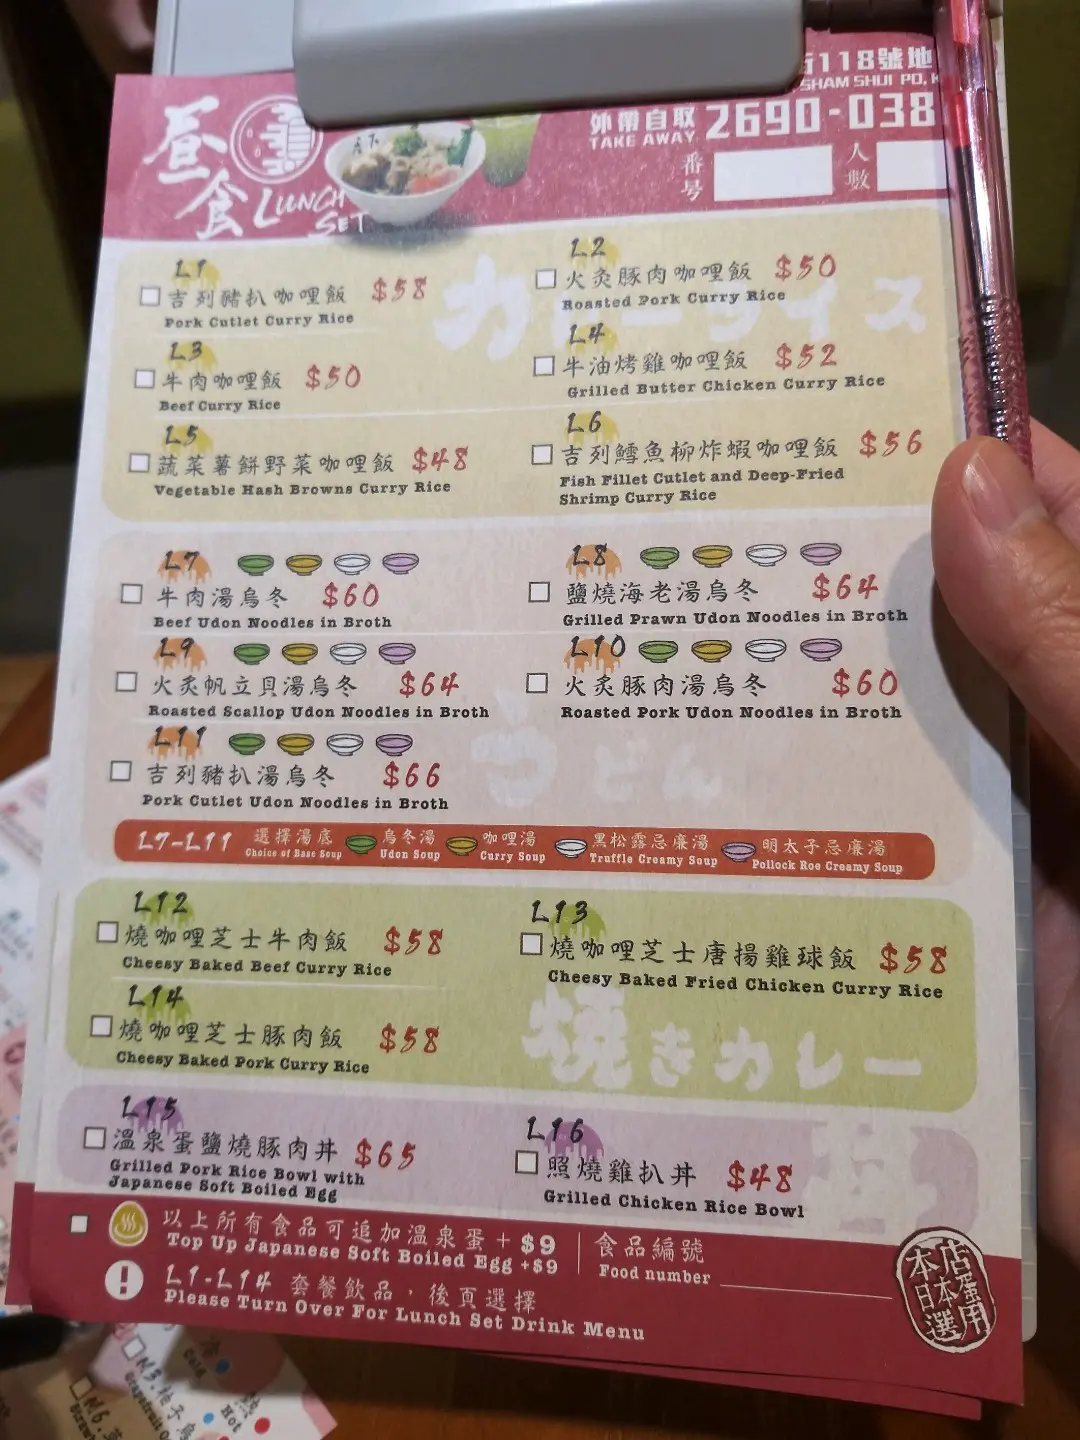 街118號地
SHAM SHUI PO, K
外帶自取
TAKE AWAY
2690-038
番号
人數
昼食
LUNCH SET
カレーライス
L1
吉列豬扒咖哩飯 $58
Pork Cutlet Curry Rice
L2
火炙豚肉咖哩飯 $50
Roasted Pork Curry Rice
L3
牛肉咖哩飯 $50
Beef Curry Rice
L4
牛油烤雞咖哩飯 $52
Grilled Butter Chicken Curry Rice
L5
蔬菜薯餅野菜咖哩飯 $48
Vegetable Hash Browns Curry Rice
L6
吉列鱈魚柳炸蝦咖哩飯 $56
Fish Fillet Cutlet and Deep-Fried
Shrimp Curry Rice
L7
牛肉湯烏冬 $60
Beef Udon Noodles in Broth
L8
鹽燒海老湯烏冬 $64
Grilled Prawn Udon Noodles in Broth
L9
火炙帆立貝湯烏冬 $64
Roasted Scallop Udon Noodles in Broth
L10
火炙豚肉湯烏冬 $60
Roasted Pork Udon Noodles in Broth
L11
吉列豬扒湯烏冬 $66
Pork Cutlet Udon Noodles in Broth
うどん
L7-L11
選擇湯底
Choice of Base Soup
烏冬湯
Udon Soup
咖哩湯
Curry Soup
黑松露忌廉湯
Truffle Creamy Soup
明太子忌廉湯
Pollock Roe Creamy Soup
L12
燒咖哩芝士牛肉飯 $58
Cheesy Baked Beef Curry Rice
L13
燒咖哩芝士唐揚雞球飯 $58
Cheesy Baked Fried Chicken Curry Rice
L14
燒咖哩芝士豚肉飯 $58
Cheesy Baked Pork Curry Rice
焼きカレー
L15
溫泉蛋鹽燒豚肉丼 $65
Grilled Pork Rice Bowl with
Japanese Soft Boiled Egg
L16
照燒雞扒丼 $48
Grilled Chicken Rice Bowl
以上所有食品可追加溫泉蛋 + $9
Top Up Japanese Soft Boiled Egg +$9
食品編號
Food number
L1-L14 套餐飲品，後頁選擇
Please Turn Over For Lunch Set Drink Menu
本店
日本蛋
選用
Cold
熱
Hot
N3.柚子
Grapefruit
N6.